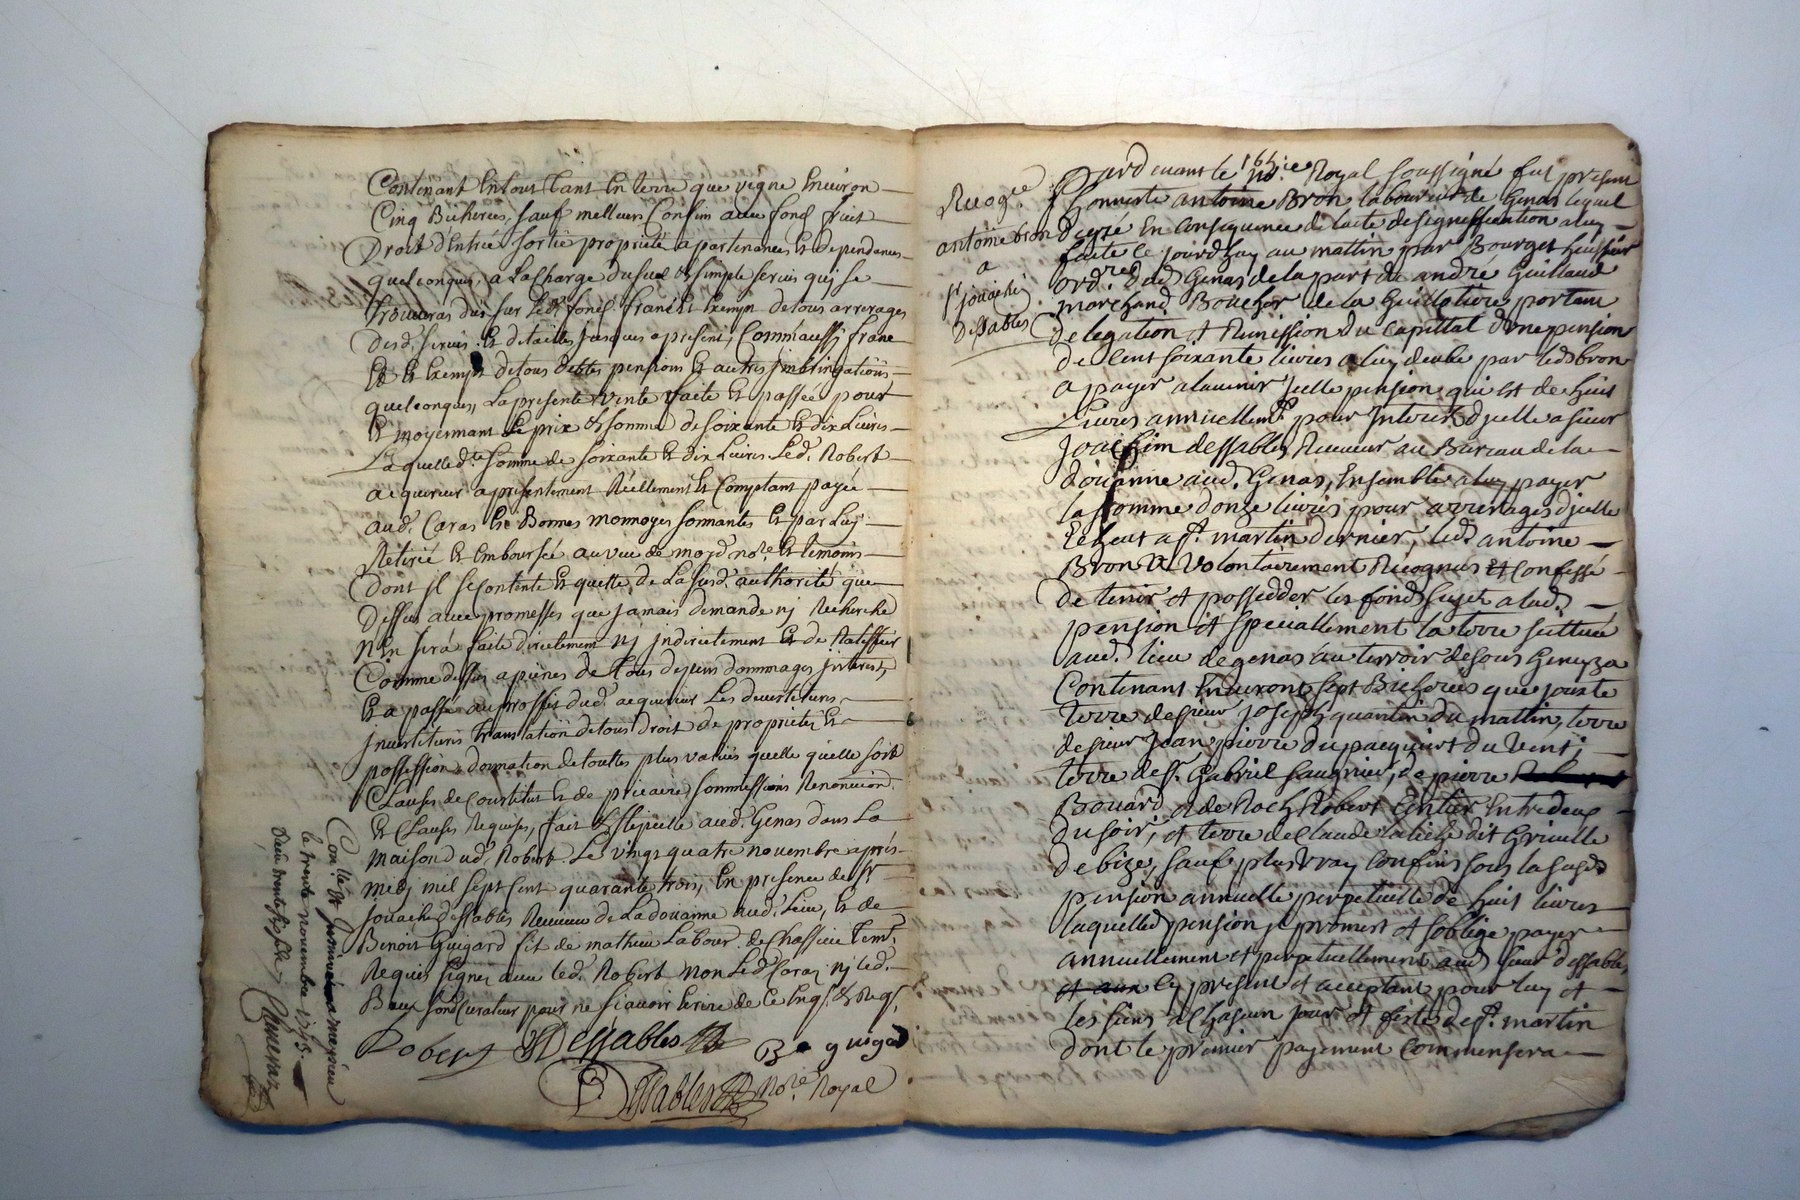 Contenant En tout tant En terre que vigne Environ
Cinq Bicherees, sauf melleurs Confins avec fond fruit
Droit d'Entrée sortie proprieté apartenances Et dependences
quelconques, a La Charge du suel & simple servis quy se
trouveras dus sur Led. fond franc Et Exempt de tous arrerages
desd. servis Et detailles jusques apresent, Comm'aussy franc
Et Exempt de tous debtes pensions Et autres jmbringations
quelconques, La presente vente faite Et passée pour
Et moyennant Le prix & somme de soixante Et dix Livres
Laquelle d.te somme de soixante Et dix Livres Led. Robert
acquereur a presentement Réellement Et Comptant payée
aud. Caras En Bonnes monnoyes sonnantes Et par Luy
Retirée Et Emboursée au vue de mojd. no.re Et temoins
Dont jl se Contente Et quitte, de La susd. authorité que
Dessus avec promesses que jamais demande nj Recherche
N'En sera faite directement nj jndirectement Et de
Comme dessus a peines de tous depens dommages jnterests,
Et a passé au proffit dud. acquereur Les devestitures
jnvestitures translation de tous Droit de proprietés Et
possession, donnation de touttes plus values quelle quelle soit
Clauses de Constitut Et de precaire, sommissions Renonciaõns
Et Clauses Requises, fait & stipullé aud. Genas dans La
maison dud. Robert Le vingt quatre novembre apres
midj mil sept Cent quarante trois, En presence de sr
joachin dessables Receveur de La doüanne aud. Lieu, Et de
Benoit Guigard fils de mathieu Labour. de Chassieu tem.
Requis signes avec led. Robert non Led. Caras nj led.
Baux son Curateur pour ne sçavoir Ecrire de Ce Enqs. & Reqs.
Robert Dessables B guigard
Dessables No.re Royal
Con.lle Et jnsinué a meyzieu
le trente novembre 1743
Receu trente six sols
165
Pardevant le no.re Royal soussigné fut present
Recog.ce
antoine bron
a
sr joachin
Dessables
honneste antoine Bron laboureur de Genas lequel
de gré En Consequence de lacte de signiffication a luy
faitte ce jourdhuy au mattin par Bourget huissier
ord.re dud. Genas de la part de andré Guillaud
marchand Boucher de la Guillotière portant
delegation et Remission du Capittal d'une pension
de Cent soixante livres a luy deube par led. bron
a payer alavenir jcelle pension qui est de huit
Livres annuellem.t pour Interest d'jcelle a sieur
Joachim dessables Receveur au Bureau de la
doüanne aud. Genas, Ensemble a luy payer
la somme d'onze livres pour arrerages d'jcelle
Echeut a st. martin dernier, led. antoine
Bron a volontairement Recognus et Confessé
de tenir et possedder les fonds sujets a lad.
pension et speciallement la terre scittuée
aud. lieu de genas au terroir de sous Genyza
Contenant Environt sept Bicherees que jouste
terre de sieur joseph quantin du mattin, terre
de sieur Jean pierre du pacquiert du Vent;
terre de sr. Gabriel saugnieu, de pierre
Bouard, et de Roch Robert Centier Entredeux
du soir; et terre de Claude dit
de bize, sauf plus vray Confins sous la susd.
pension annuelle perpetuelle de huit livres
laquelled. pension jl promest et soblige payer
annuellement et perpetuellement aud. sieur dessables
et aux cy present et acceptant pour luy et
les siens a Chacun jour et feste de st. martin
dont le premier payement Commensera